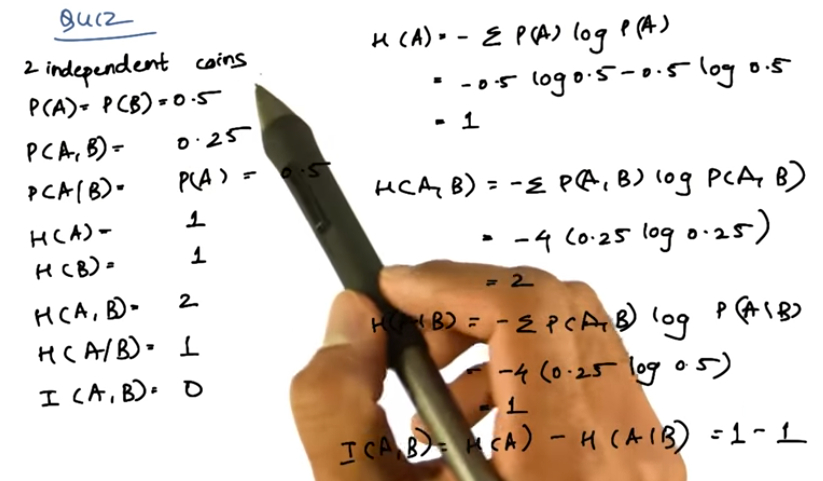 Quiz
2 independent coins
P(A)= P(B)=0.5
P(A,B)= 0.25
P(A|B)= P(A) = 0.5
H(A)= 1
H(B)= 1
H(A,B)= 2
H(A/B)= 1
I (A,B)= 0
H(A)= - Σ P(A) log P(A)
= -0.5 log 0.5 - 0.5 log 0.5
= 1
H(A,B) = -Σ P(A,B) log P(A,B)
= -4 (0.25 log 0.25)
= 2
H(A|B) = -Σ P(A,B) log P(A|B)
= -4 (0.25 log 0.5)
= 1
I(A,B)= H(A) - H(A|B) = 1 - 1